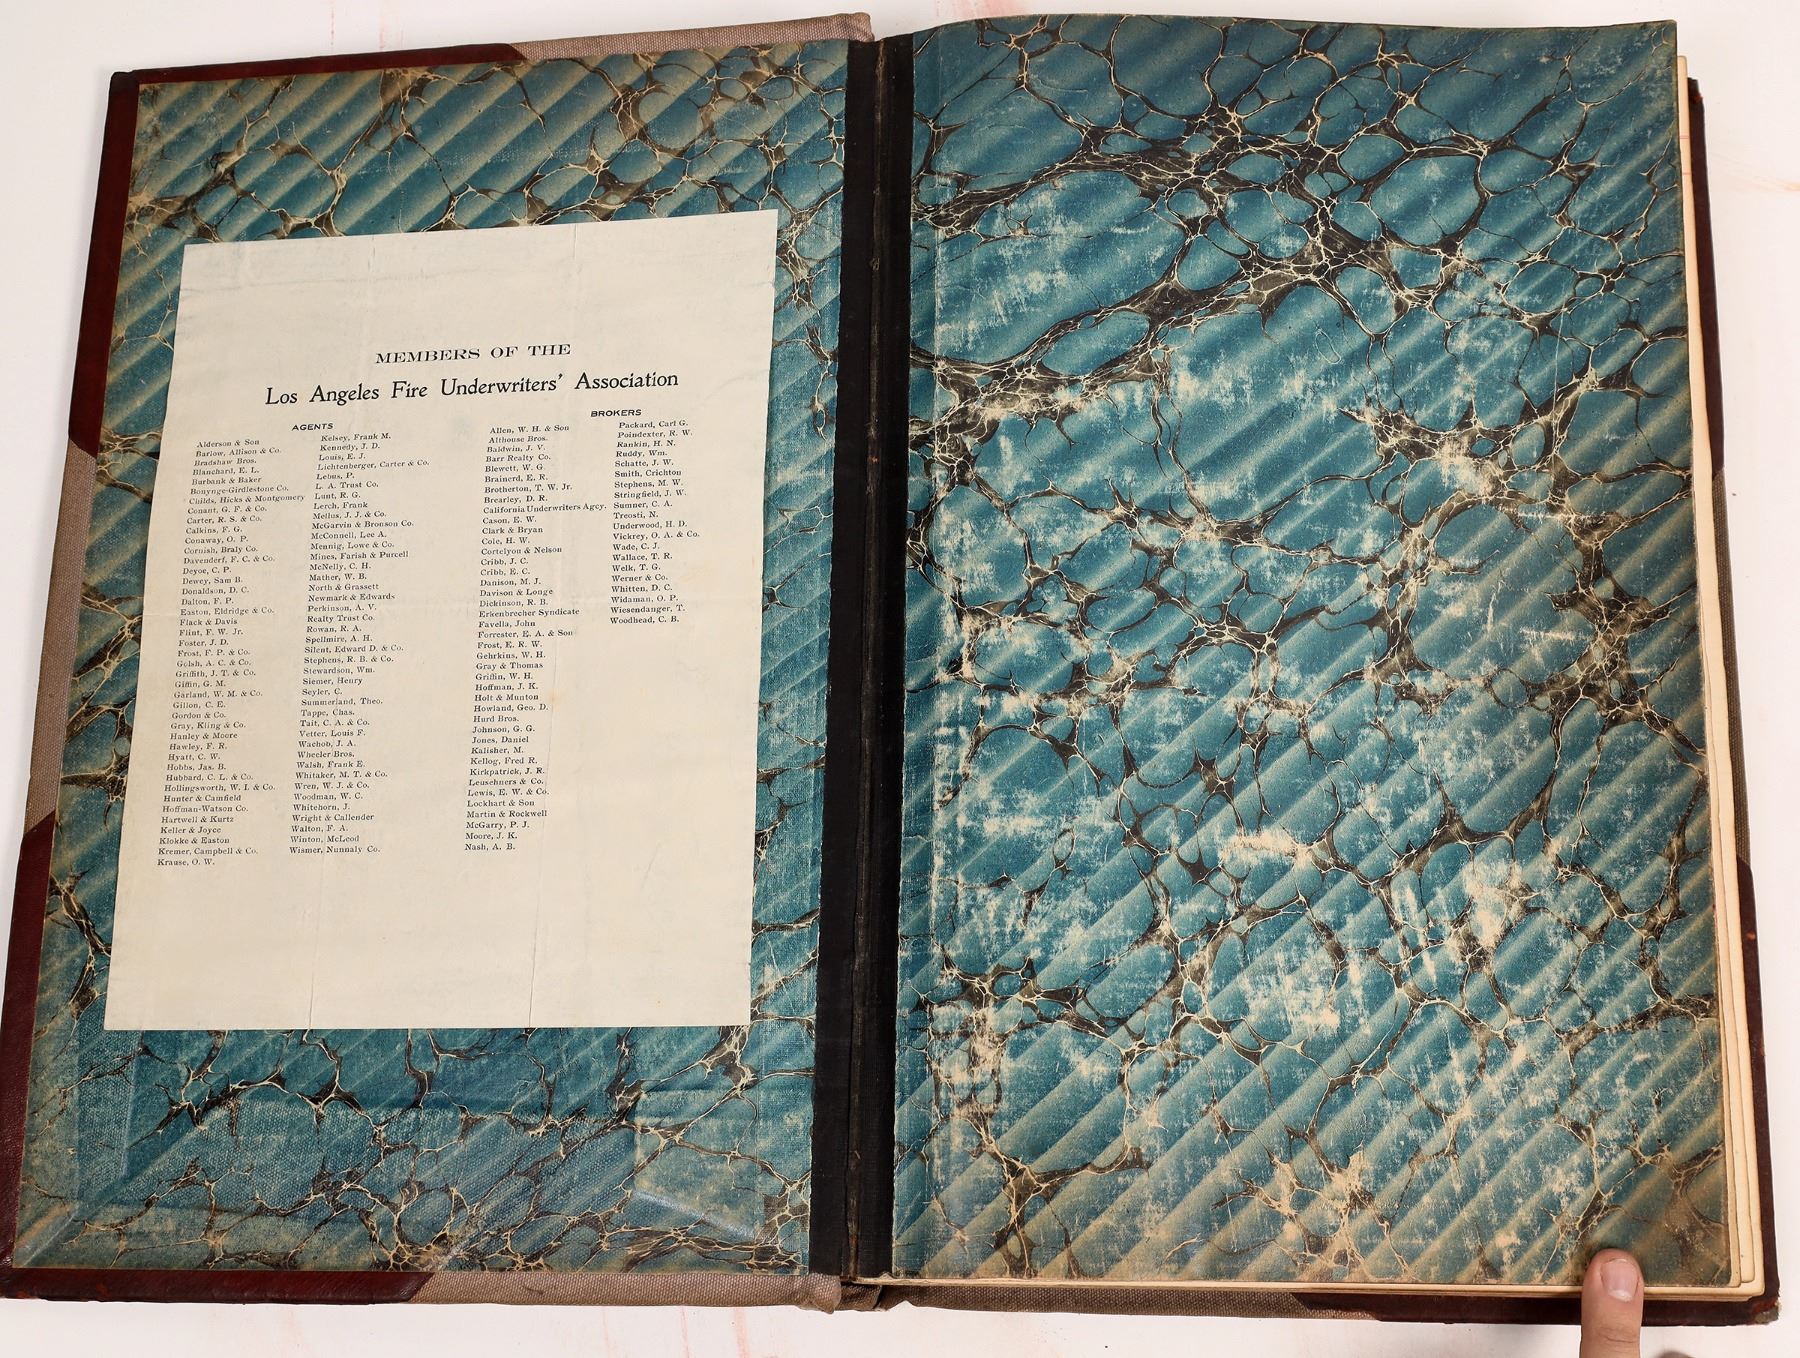 MEMBERS OF THE
Los Angeles Fire Underwriters' Association
AGENTS
Alderson & Son
Barlow, Allison & Co.
Bradshaw Bros.
Blanchard, E. L.
Burbank & Baker
Bonynge-Girdlestone Co.
Childs, Hicks & Montgomery
Conant, G. F. & Co.
Carter, R. S. & Co.
Calkins, F. G.
Conaway, O. P.
Cornish, Braly Co.
Davenderf, F. C. & Co.
Deyoe, C. P.
Dewey, Sam B.
Donaldson, D. C.
Dalton, F. P.
Easton, Eldridge & Co.
Flack & Davis
Flint, F. W. Jr.
Foster, J. D.
Frost, F. P. & Co.
Golsh, A. C. & Co.
Griffith, J. T. & Co.
Giffin, G. M.
Garland, W. M. & Co.
Gillon, C. E.
Gordon & Co.
Gray, Kling & Co.
Hanley & Moore
Hawley, F. R.
Hyatt, C. W.
Hobbs, Jas. B.
Hubbard, C. L. & Co.
Hollingsworth, W. I. & Co.
Hunter & Camfield
Hoffman-Watson Co.
Hartwell & Kurtz
Keller & Joyce
Klokke & Easton
Kremer, Campbell & Co.
Krause, O. W.
Kelsey, Frank M.
Kennedy, J. D.
Louis, E. J.
Lichtenberger, Carter & Co.
Lebus, P.
L. A. Trust Co.
Lunt, R. G.
Lerch, Frank
Mellus, J. J. & Co.
McGarvin & Bronson Co.
McConnell, Lee A.
Mennig, Lowe & Co.
Mines, Farish & Purcell
McNelly, C. H.
Mather, W. B.
North & Grassett
Newmark & Edwards
Perkinson, A. V.
Realty Trust Co.
Rowan, R. A.
Spellmire, A. H.
Silent, Edward D. & Co.
Stephens, R. B. & Co.
Stewardson, Wm.
Siemer, Henry
Seyler, C.
Summerland, Theo.
Tappe, Chas.
Tait, C. A. & Co.
Vetter, Louis F.
Wachob, J. A.
Wheeler Bros.
Walsh, Frank E.
Whitaker, M. T. & Co.
Wren, W. J. & Co.
Woodman, W. C.
Whitehorn, J.
Wright & Callender
Walton, F. A.
Winton, McLeod
Wismer, Nunnaly Co.
BROKERS
Allen, W. H. & Son
Althouse Bros.
Baldwin, J. V.
Barr Realty Co.
Blewett, W. G.
Brainerd, E. R.
Brotherton, T. W. Jr.
Brearley, D. R.
California Underwriters Agcy.
Cason, E. W.
Clark & Bryan
Cole, H. W.
Cortelyon & Nelson
Cribb, J. C.
Cribb, E. C.
Danison, M. J.
Davison & Longe
Dickinson, R. B.
Erkenbrecher Syndicate
Favella, John
Forrester, E. A. & Son
Frost, E. R. W.
Gehrkins, W. H.
Gray & Thomas
Griffin, W. H.
Hoffman, J. K.
Holt & Munton
Howland, Geo. D.
Hurd Bros.
Johnson, G. G.
Jones, Daniel
Kalisher, M.
Kellog, Fred R.
Kirkpatrick, J. R.
Leuschners & Co.
Lewis, E. W. & Co.
Lockhart & Son
Martin & Rockwell
McGarry, P. J.
Moore, J. K.
Nash, A. B.
Packard, Carl G.
Poindexter, R. W.
Rankin, H. N.
Ruddy, Wm.
Schatte, J. W.
Smith, Crichton
Stephens, M. W.
Stringfield, J. W.
Sumner, C. A.
Treosti, N.
Underwood, H. D.
Vickrey, O. A. & Co.
Wade, C. J.
Wallace, T. R.
Welk, T. G.
Werner & Co.
Whitten, D. C.
Widaman, O. P.
Wiesendanger, T.
Woodhead, C. B.